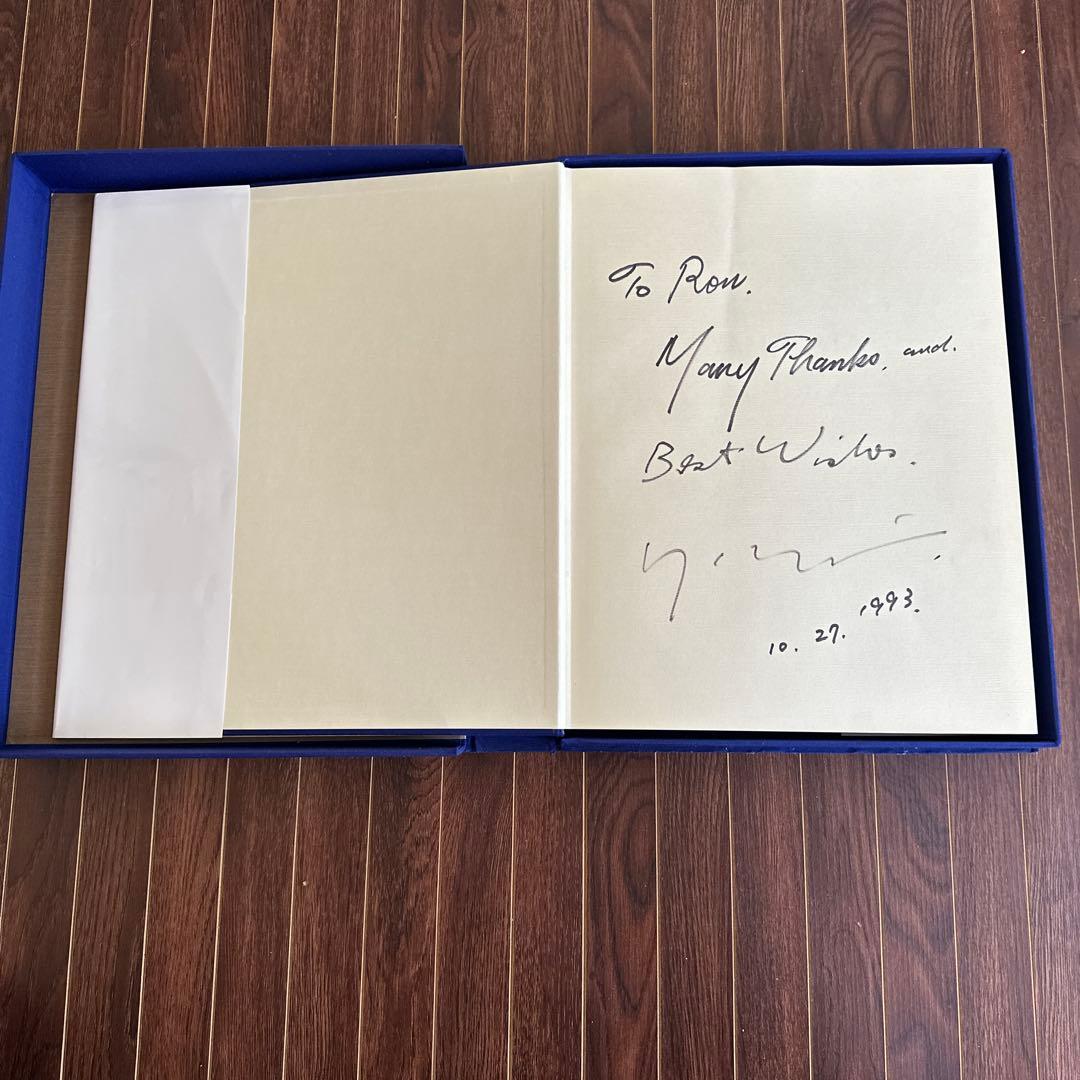 To Ron.
Many Thanks, and.
Best Wishes.
10. 27. 1993.